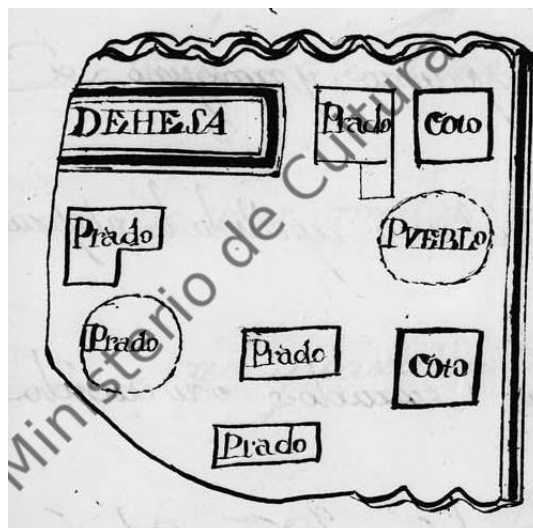 DEHESA
Prado
Coto
Prado
PVEBLO
Prado
Prado
Coto
Prado
Ministerio de Cultura